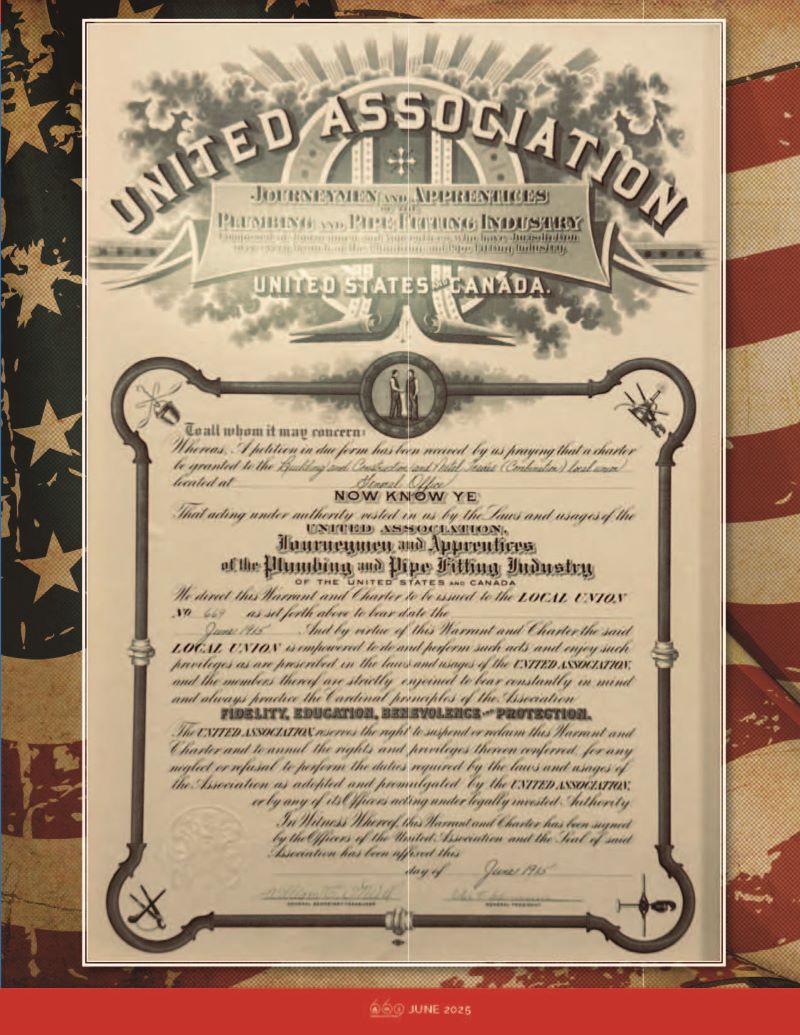 UNITED ASSOCIATION
JOURNEYMEN AND APPRENTICES
OF THE
PLUMBING AND PIPE FITTING INDUSTRY
UNITED STATES AND CANADA.
To all whom it may concern:
Whereas, A petition in due form has been received by us praying that a charter
be granted to the Building and Construction and Metal Trades (Combination) local union
located at General Office
NOW KNOW YE
That acting under authority vested in us by the Laws and usages of the
UNITED ASSOCIATION,
Journeymen and Apprentices
of the Plumbing and Pipe Fitting Industry
OF THE UNITED STATES AND CANADA
We direct this Warrant and Charter to be issued to the LOCAL UNION
No 669 as set forth above to bear date the
June 1915 And by virtue of this Warrant and Charter the said
LOCAL UNION is empowered to do and perform such acts and enjoy such
privileges as are prescribed in the laws and usages of the UNITED ASSOCIATION,
and the members thereof are strictly enjoined to bear constantly in mind
and always practice the Cardinal principles of the Association
FIDELITY, EDUCATION, BENEVOLENCE AND PROTECTION.
The UNITED ASSOCIATION reserves the right to suspend or reclaim this Warrant and
Charter and to annul the rights and privileges thereon conferred, for any
neglect or refusal to perform the duties required by the laws and usages of
the Association as adopted and promulgated by the UNITED ASSOCIATION,
or by any of its Officers acting under legally invested Authority.
In Witness Whereof, this Warrant and Charter has been signed
by the Officers of the United Association and the Seal of said
Association has been affixed this
day of June 1915
GENERAL SECRETARY-TREASURER
GENERAL PRESIDENT
669 JUNE 2025